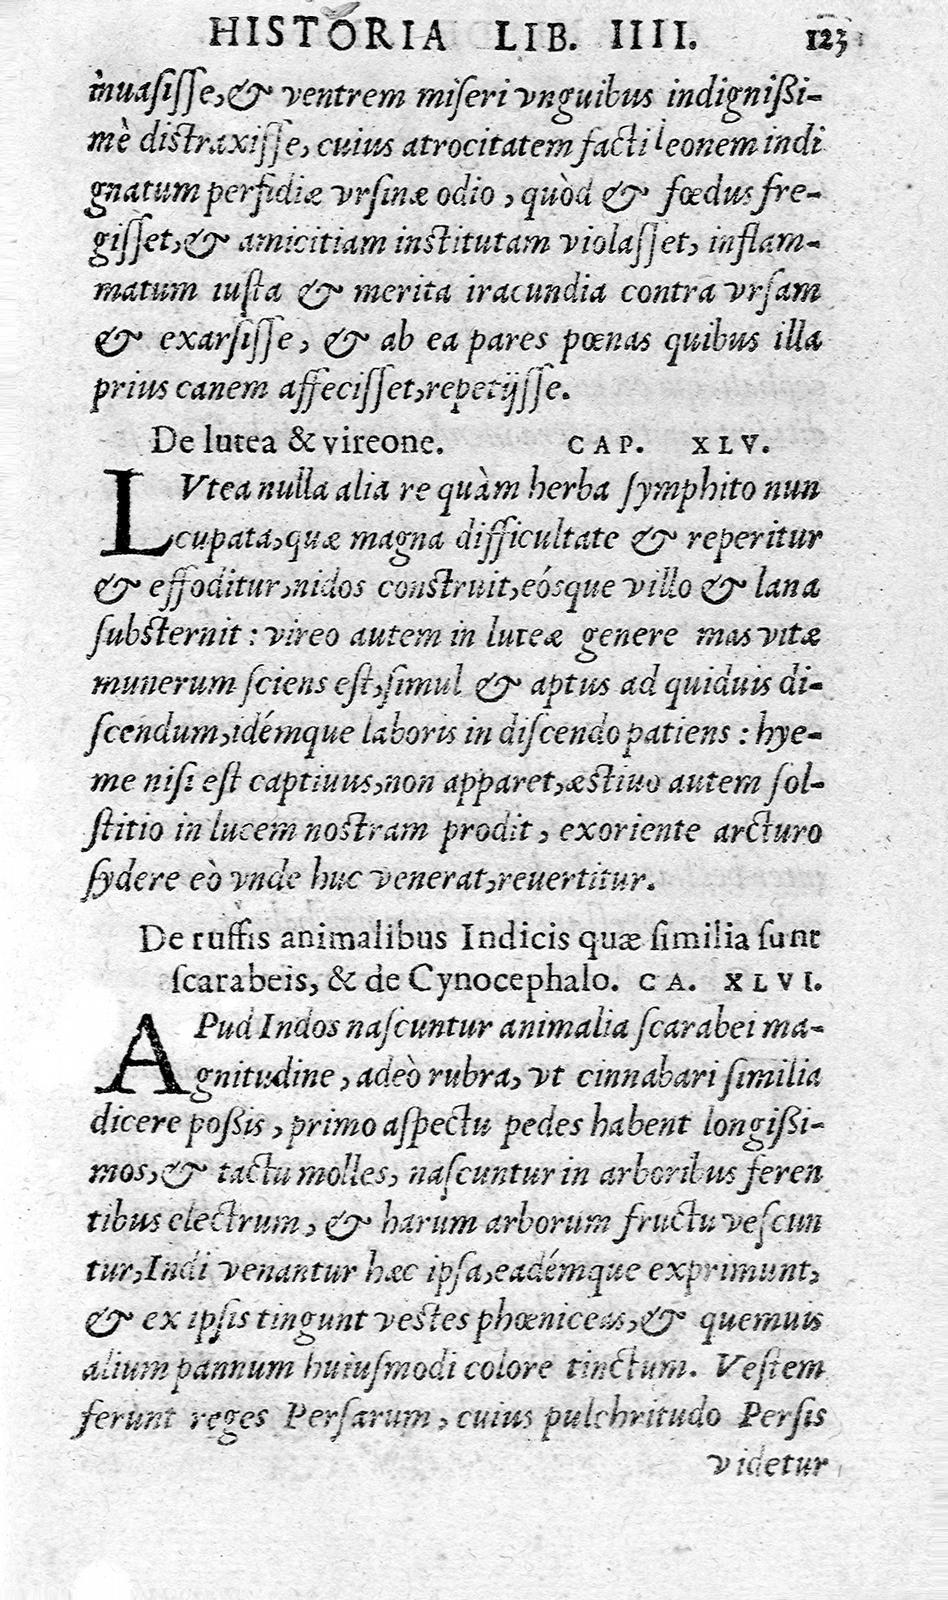 HISTORIA LIB. IIII. 123
inuasiſſe, & ventrem miſeri vnguibus indignißi-
mè distraxiſſe, cuius atrocitatem facti leonem indi
gnatum perfidiæ vrſinæ odio, quòd & fœdus fre-
giſſet, & amicitiam institutam violaſſet, inflam-
matum iuſta & merita iracundia contra vrſam
& exarſiſſe, & ab ea pares pœnas quibus illa
prius canem affeciſſet, repetijſſe.
De lutea & vireone. CAP. XLV.
LVtea nulla alia re quàm herba ſymphito nun
cupata, quæ magna difficultate & reperitur
& effoditur, nidos construit, eósque villo & lana
ſubsternit : vireo autem in luteæ genere mas vitæ
munerum ſciens eſt, ſimul & aptus ad quiduis di-
ſcendum, idémque laboris in diſcendo patiens : hye-
me niſi eſt captiuus, non apparet, æstiuo autem ſol-
ſtitio in lucem nostram prodit, exoriente arcturo
ſydere eò vnde huc venerat, reuertitur.
De ruffis animalibus Indicis quæ ſimilia ſunt
ſcarabeis, & de Cynocephalo. CA. XLVI.
APud Indos naſcuntur animalia ſcarabei ma-
gnitudine, adeò rubra, vt cinnabari ſimilia
dicere poßis, primo aſpectu pedes habent longißi-
mos, & tactu molles, naſcuntur in arboribus feren
tibus electrum, & harum arborum fructu veſcun
tur, Indi venantur hæc ipſa, eadémque exprimunt,
& ex ipſis tingunt vestes phœniceas, & quemuis
alium pannum huiuſmodi colore tinctum. Veſtem
ferunt reges Perſarum, cuius pulchritudo Perſis
videtur